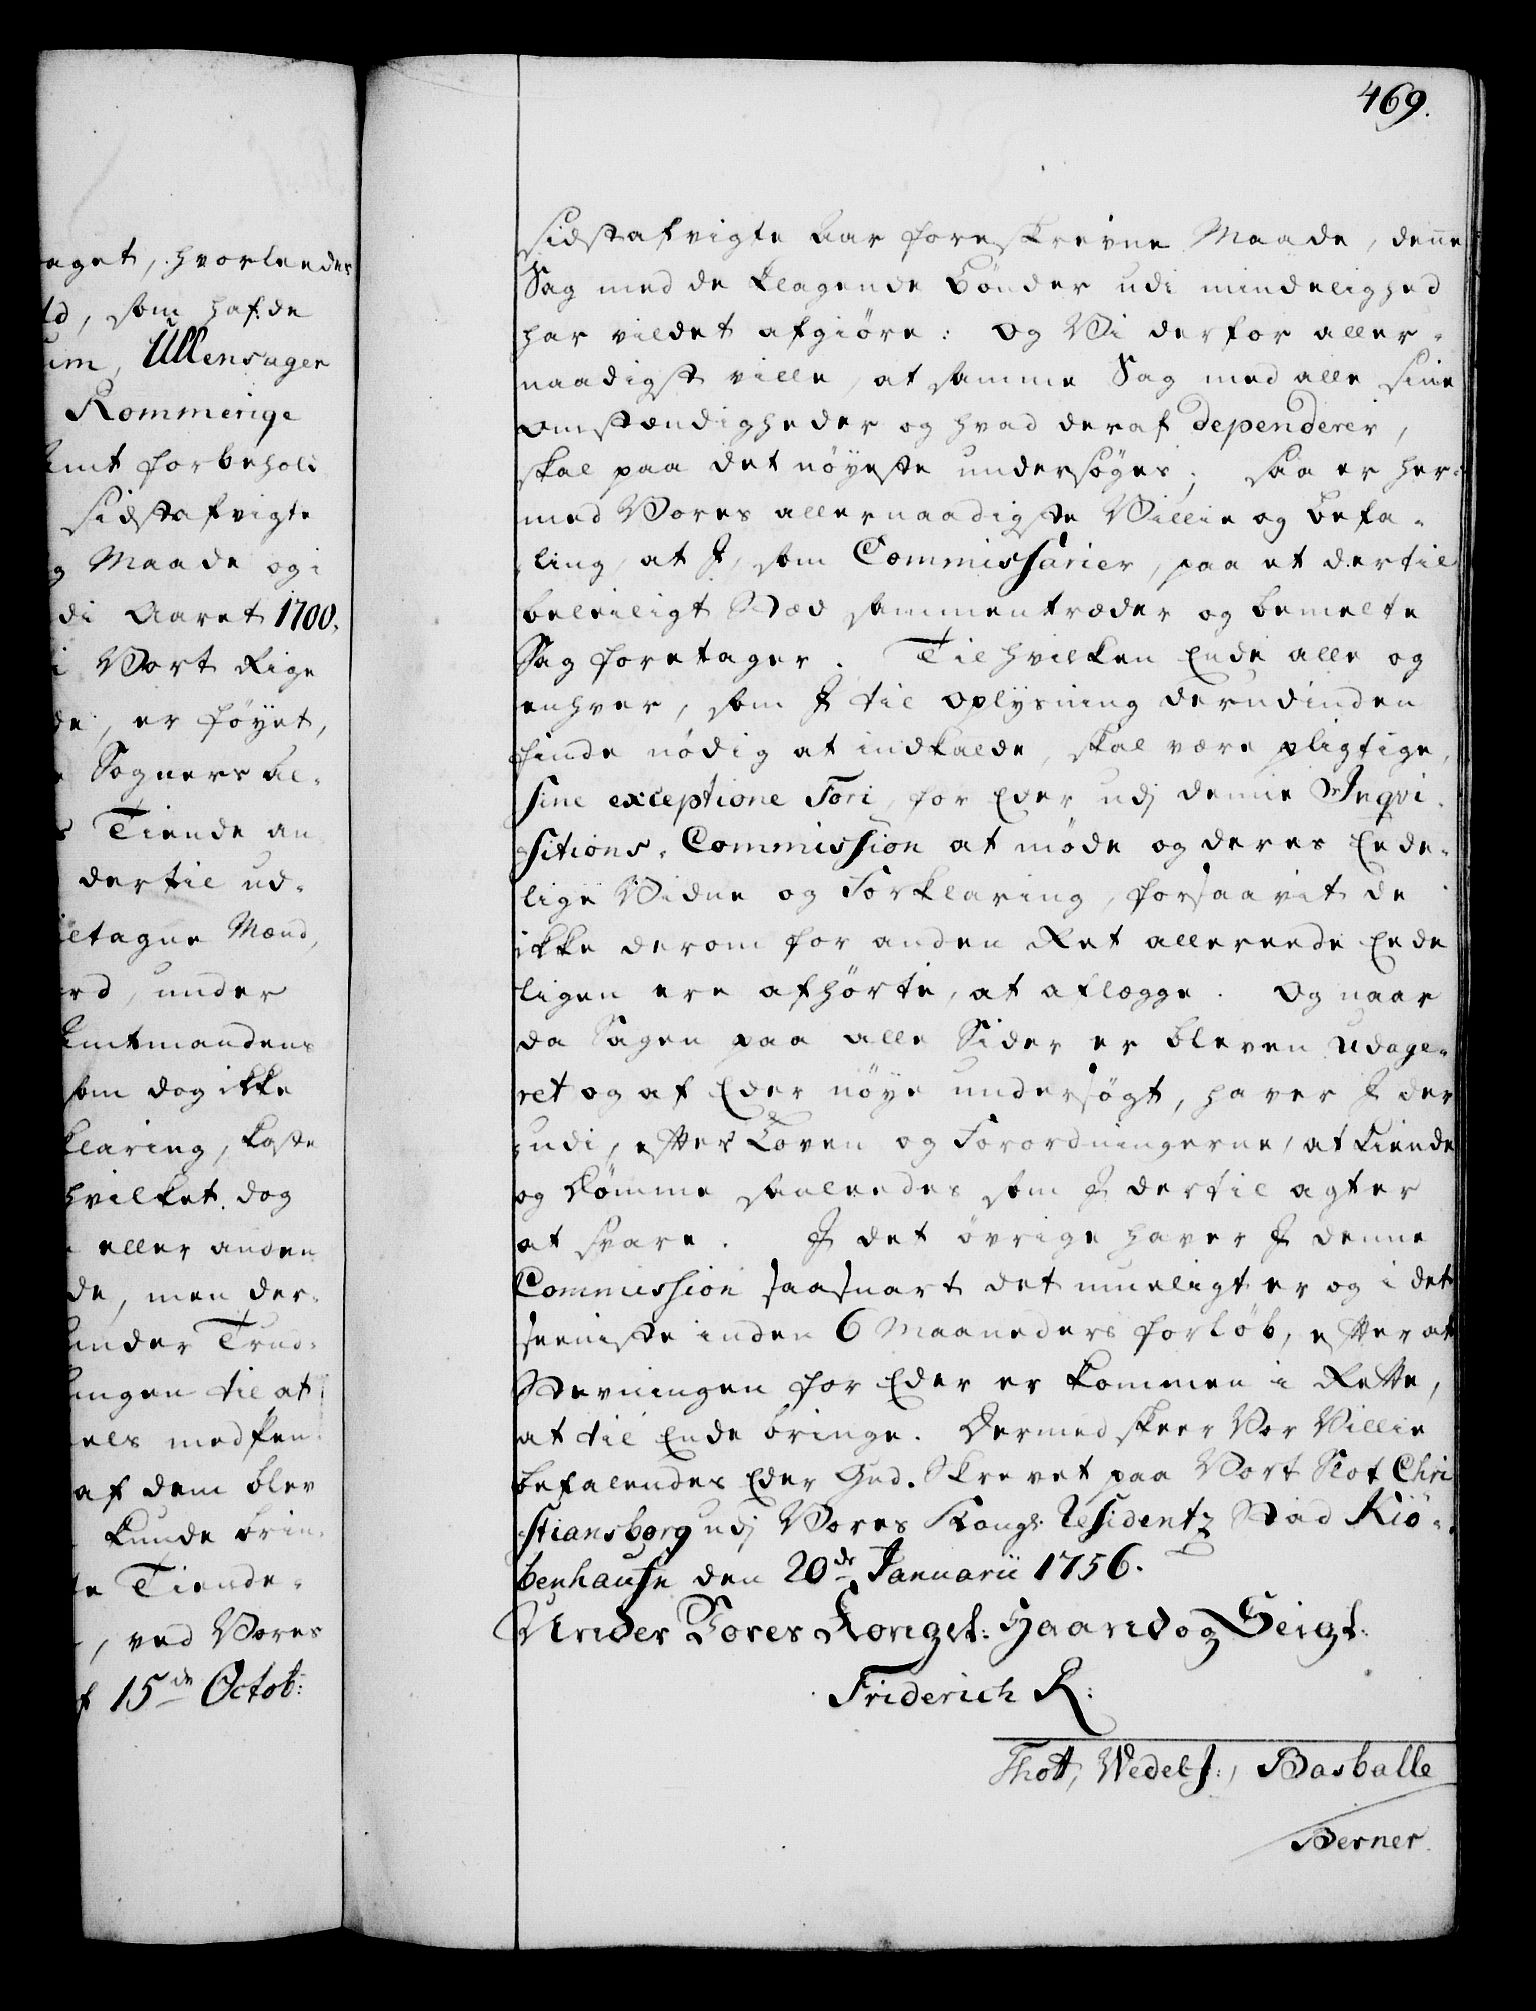 aget, hvorleedes
ld, som hafde
um, Ullensager
Rommerige
Amt forbehol¬
sidstafvigte
g Maade og i
di Aaret 1700.
i Vort Rige
de, er føyet,
Sogners Al¬
s Tiende an
dertil ud¬
iltagne Mænd,
rd, under
Amtmandens
som dog ikke
klaring, koste
hvilket dog
eller anden
de, men der¬
under Trud¬
ungen til at
els medfen¬
af dem blev
kunde brin¬
te Tiende¬
, ved Vores
f 15de Octob:
469.
sidstafvigte Aar foreskrevne Maade, denne
Sag med de klagende Bønder udi mindelighed
har vildet afgiøre: Og Vi derfor aller¬
naadigst ville, at samme Sag med alle sine
Omstændigheder og hvad deraf dependerer,
skal paa det nøyeste undersøges; Saa er her¬
med Vores allernaadigste Villie og Befa¬
ling, at I, som Commissarier, paa et dertil
beleiligt Stæd sammentræder og bemelte
Sag foretager. Til hvilken Ende alle og
enhver, som I til Oplysning derudinden
finde nødig at indkalde, skal være pligtige,
sine exceptione Fori, for Eder udj denne Inqvi¬
sitions-Commission at møde og deres Eede¬
lige Vidne og Forklaring, forsaavit de
ikke derom for anden Ret allereede Eede
ligen ere afhørte, at aflægge. Og naar
da Sagen paa alle Sider er bleven udage¬
ret og af Eder nøye undersøgt, haver I der
udi, efter Loven og Forordningerne, at kiende
og dømme saaleedes som I dertil agter
at svare. I det øvrige haver I denne
Commission saasnart det mueligt er og i det
seeniste inden 6 Maaneders forløb, efter at
Stevningen for Eder er kommen i Rette,
at til Ende bringe. Dermed skeer Vor Villie
befalendes Eder Gud. Skrevet paa Vort Slot Chri
stiansborg udj Vores Kongl: Residentz Stad Kiø¬
benhaufn den 20de Januarii 1756.
Under Vores Kongel: Haand og Seigl:
Friderich R:
Thott, Wedel J:, Basballe
Berner.